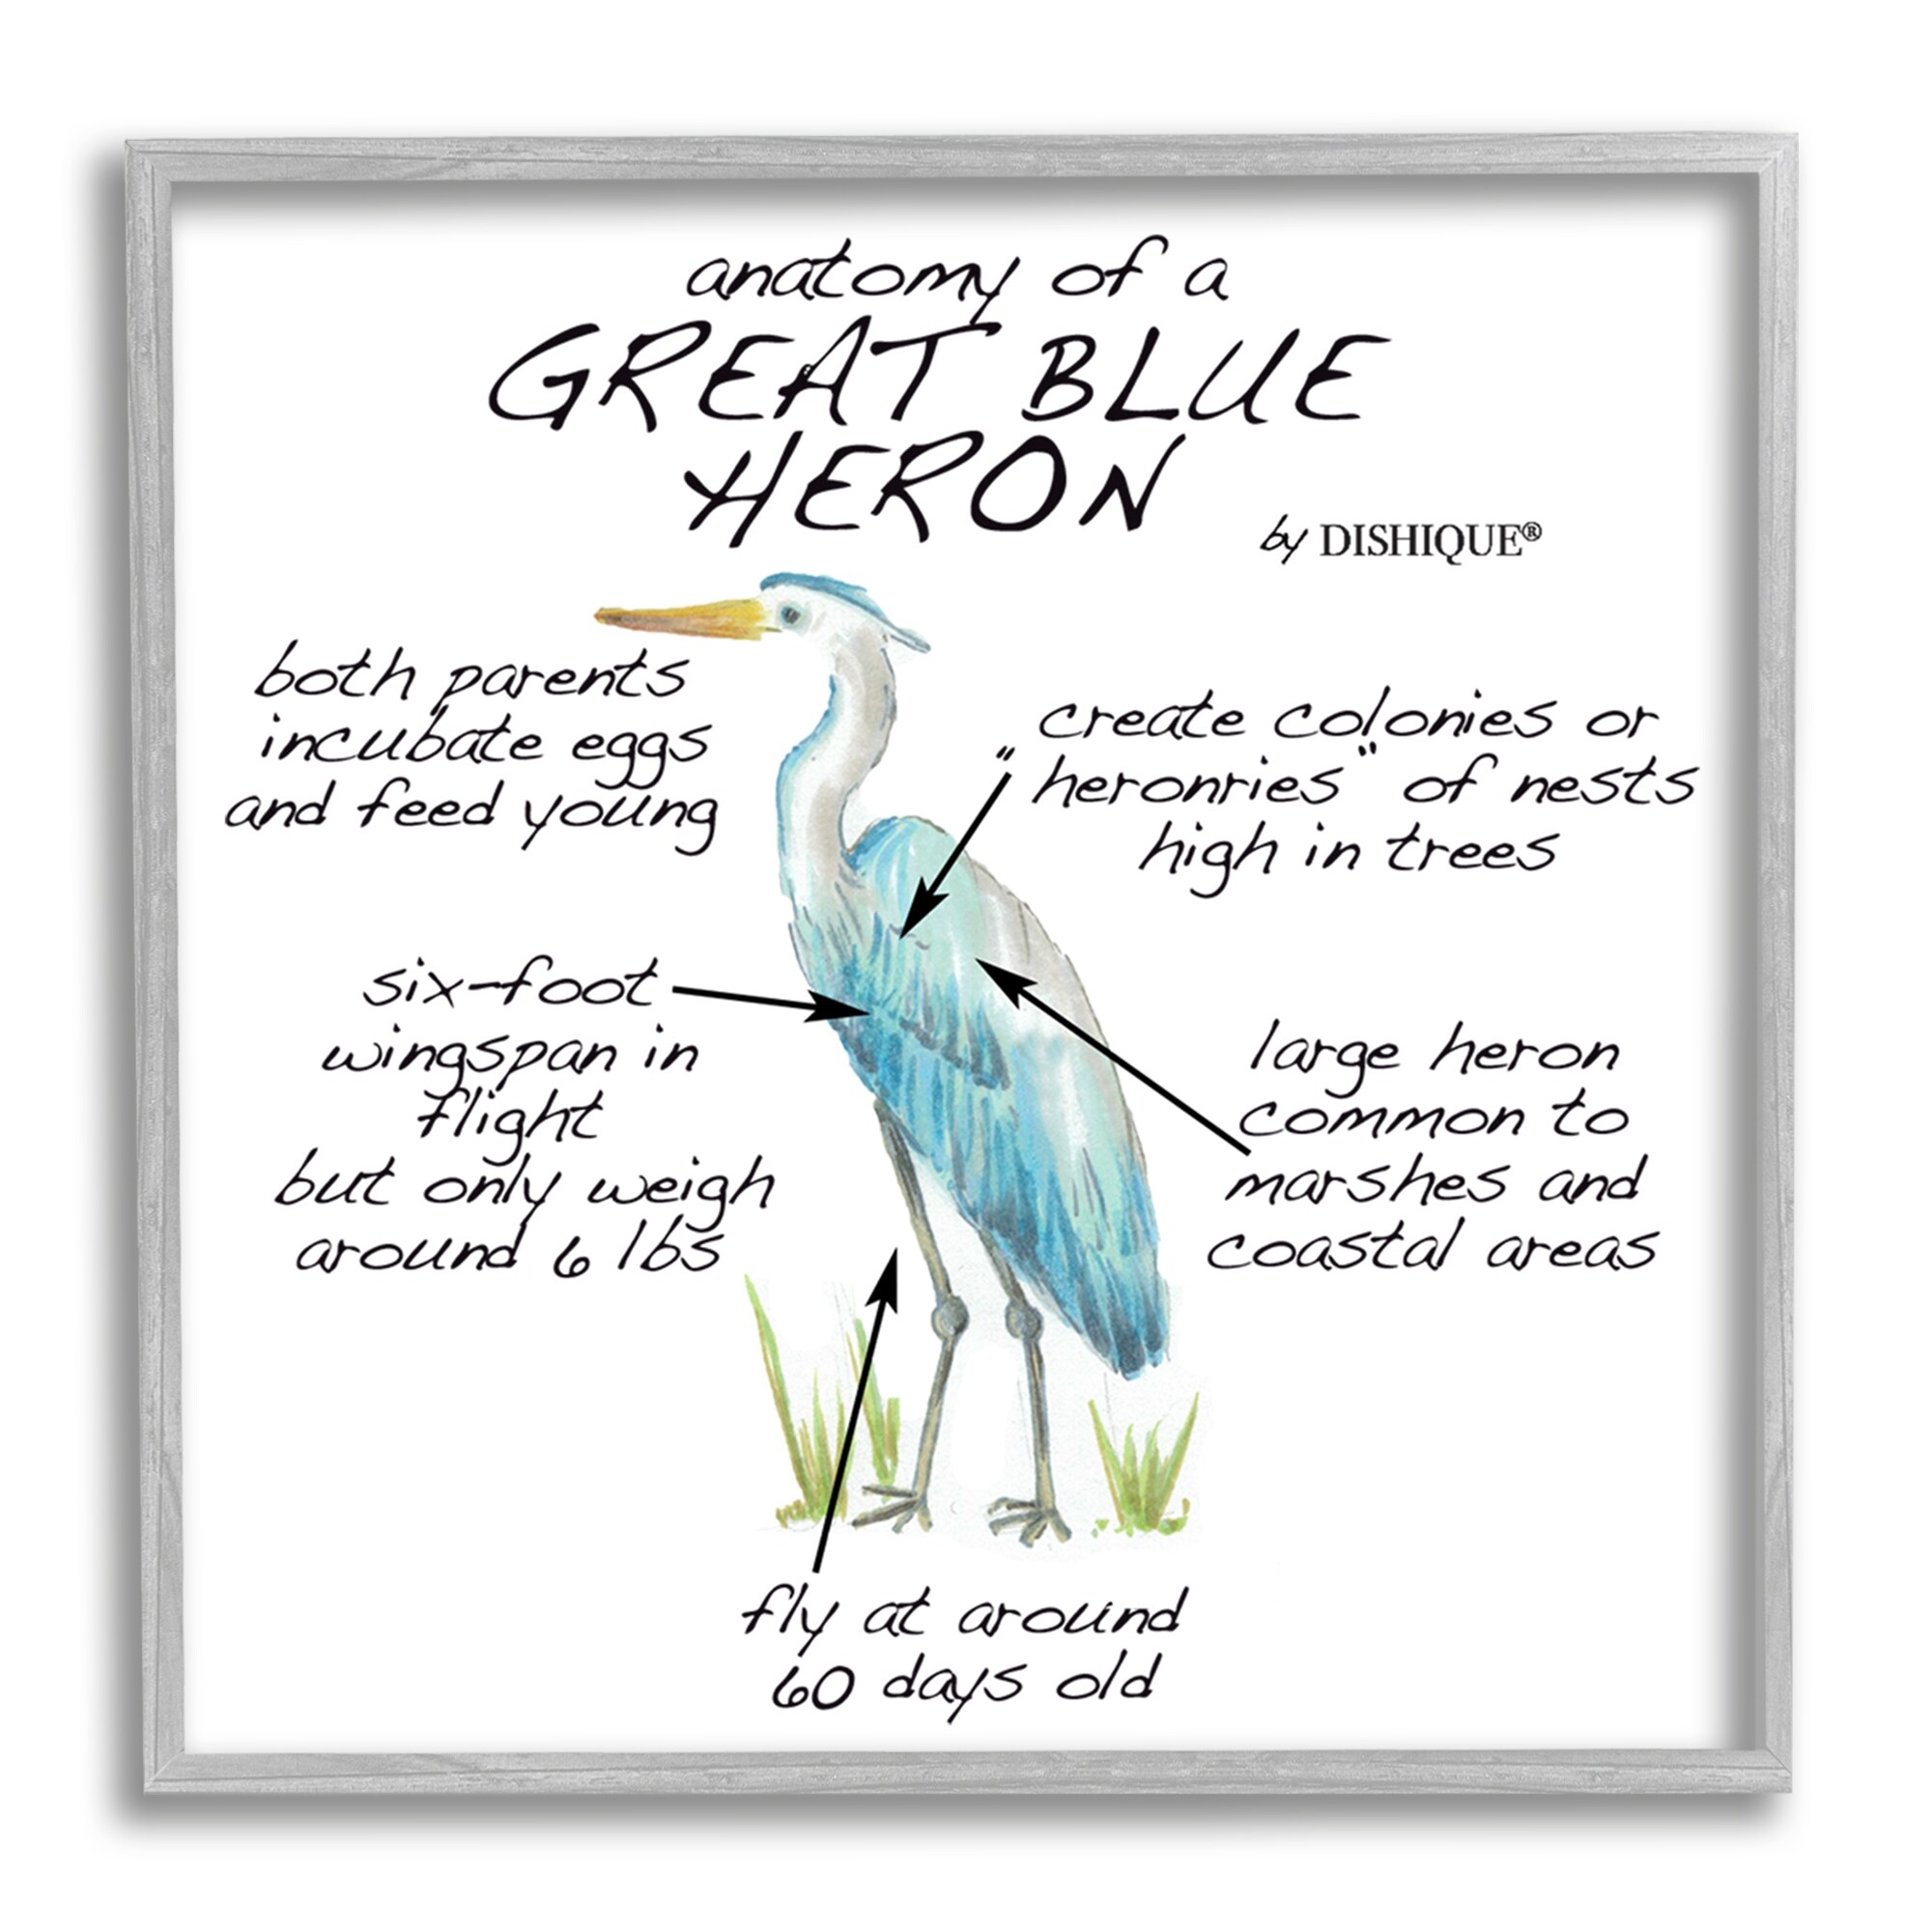 anatomy of a
GREAT BLUE
HERON
by DISHIQUE®
both parents
incubate eggs
and feed young
create colonies or
"heronries" of nests
high in trees
six-foot
wingspan in
flight
but only weigh
around 6 lbs
large heron
common to
marshes and
coastal areas
fly at around
60 days old